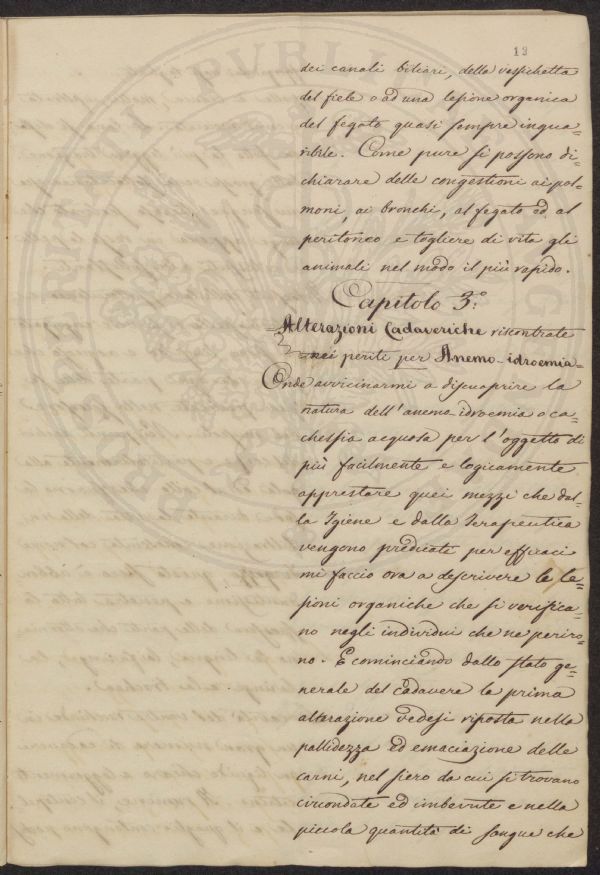 13
dei canali biliari, della vessichetta
del fiele o ad una lesione organica
del fegato quasi sempre ingua=
ribile. Come pure si possono di=
chiarare delle congestioni ai pol=
moni, ai bronchi, al fegato ed al
peritoneo e togliere di vita gli
animali nel modo il più rapido.
Capitolo 3.°
=Alterazioni Cadaveriche riscontrate
=nei periti per Anemo-idroemia=
Onde avvicinarmi a discuoprire la
natura dell'anemo-idroemia o ca=
chessia acquosa per l'oggetto di
più facilmente e logicamente
apprestare quei mezzi che dal=
la Igiene e dalla Terapeutica
vengono predicati per efficaci
mi faccio ora a descrivere le le=
sioni organiche che si verifica=
no negli individui che ne periro=
no. E cominciando dallo stato ge=
nerale del cadavere la prima
alterazione vedesi riposta nella
pallidezza ed emaciazione delle
carni, nel siero da cui si trovano
circondate ed imbevute e nella
piccola quantità di sangue che